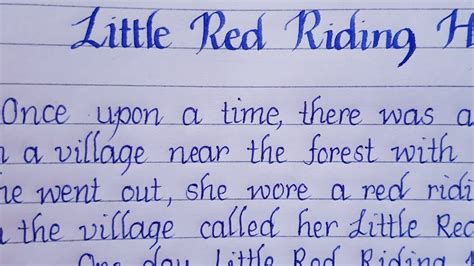 Little Red Riding H
Once upon a time, there was a
a village near the forest with
he went out, she wore a red ridi
the village called her Little Red
One day Little Red Riding